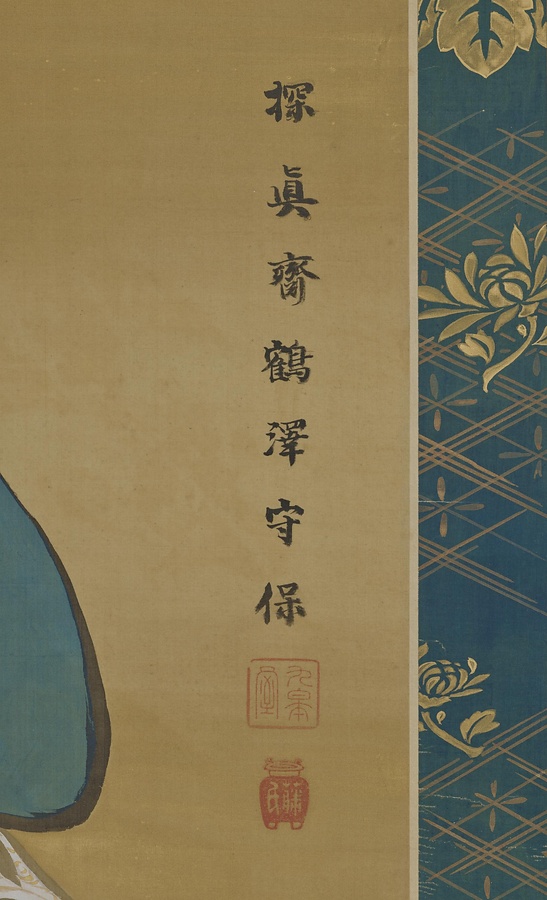 探眞齋鶴澤守保